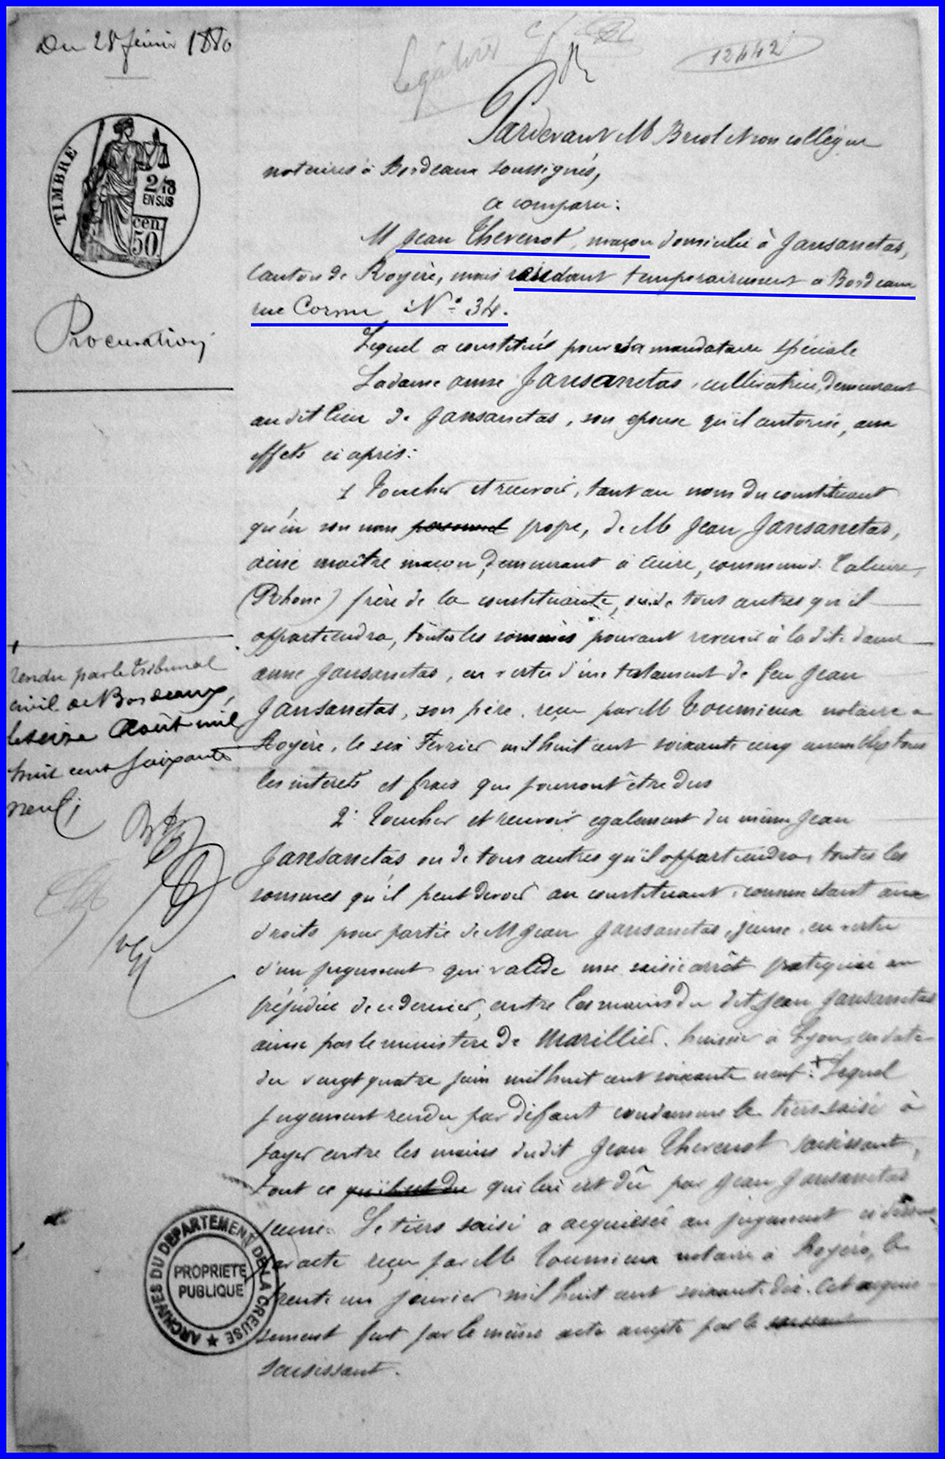 Du 28 février 1880
12442
TIMBRE
2/10
EN SUS
50
cen
Procuration
Pardevant Me Briol et son collègue
notaires à Bordeaux soussignés,
a comparu:
M Jean Thevenot, maçon domicilié à Jansanetas,
canton de Royère, mais résidant temporairement à Bordeaux
rue Cornu N° 34.
Lequel a constitué pour sa mandataire spéciale
La dame anne Jansanetas, cultivatrice, demeurant
audit lieu de Jansanetas, son épouse qu'il autorise, aux
effets ci après:
1 Toucher et recevoir, tant au nom du constituant
qu'en son nom personnel propre, de M Jean Jansanetas,
ainé maître maçon, demeurant à Cuire, commune Caluire,
(Rhône) frère de la constituante, ou de tous autres qu'il
appartiendra, toutes les sommes pouvant revenir à la dite dame
anne Jansanetas, en vertu d'un testament de feu Jean
Jansanetas, son père, reçu par Me Toumieux notaire à
Royère, le six Fevrier mil huit cent soixante cinq ensemble tous
les interets et frais que pourront être dus
2° Toucher et recevoir egalement du même Jean
Jansanetas ou de tous autres qu'il appartiendra, toutes les
sommes qu'il peut devoir au constituant, comme étant aux
droits pour partie de M Jean Jansanetas, jeune, en vertu
d'un jugement qui valide une saisie arrêt pratiquée au
préjudice de ce dernier, entre les mains du dit Jean Jansanetas
ainé par le ministère de Marillier, huissier à Lyon, en date
du vingt quatre juin mil huit cent soixante neuf. Lequel
jugement rendu par défaut condamne le tiers saisi à
payer entre les mains dudit Jean Thevenot saisissant,
tout ce qui lui est dû par Jean Jansanetas
jeune. Le tiers saisi a acquiescé au jugement ci dessus
par acte reçu par Me Toumieux notaire à Royère, le
trente un janvier mil huit cent soixante dix. Cet acquies-
cement fut par le même acte accepté par le
saisissant.
rendu par le tribunal
civil de Bordeaux,
le seize Août mil
huit cent soixante
neuf;
ARCHIVES DU DEPARTEMENT DE LA CREUSE
PROPRIETE
PUBLIQUE